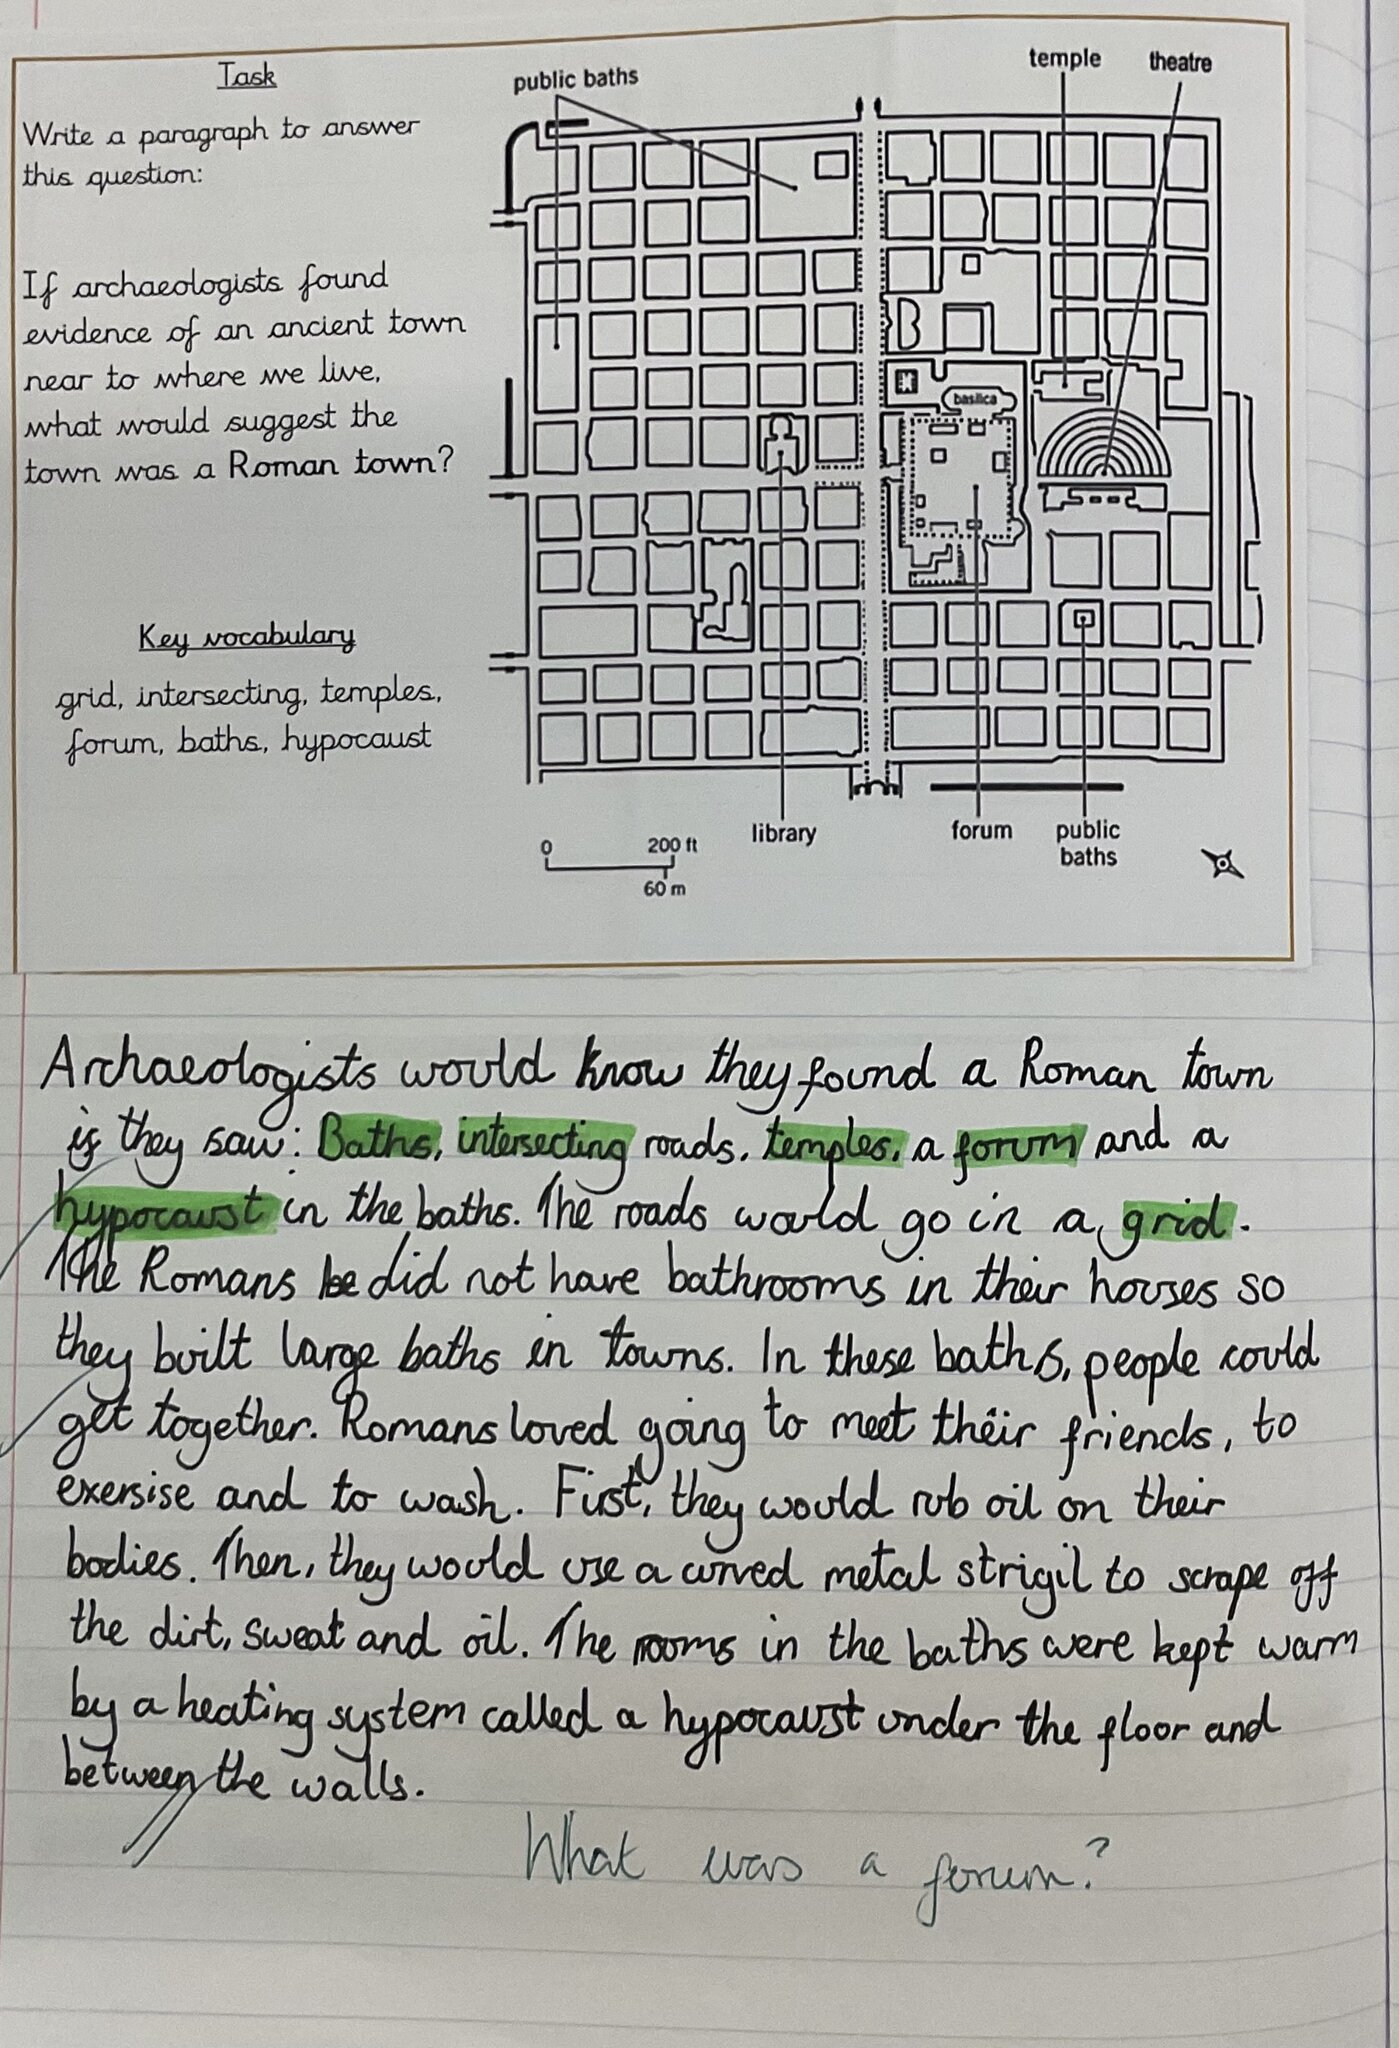 Task
Write a paragraph to answer
this question:
If archaeologists found
evidence of an ancient town
near to where we live,
what would suggest the
town was a Roman town?
Key vocabulary
grid, intersecting, temples,
forum, baths, hypocaust
public baths
temple
theatre
basilica
library
forum
public
baths
0
200 ft
60 m
Archaeologists would know they found a Roman town
if they saw: Baths, intersecting roads, temples, a forum and a
hypocaust in the baths. The roads would go in a grid.
The Romans be did not have bathrooms in their houses so
they built large baths in towns. In these baths, people could
get together. Romans loved going to meet their friends, to
exersise and to wash. First, they would rub oil on their
bodies. Then, they would use a curved metal strigil to scrape off
the dirt, sweat and oil. The rooms in the baths were kept warm
by a heating system called a hypocaust under the floor and
between the walls.
What was a forum?